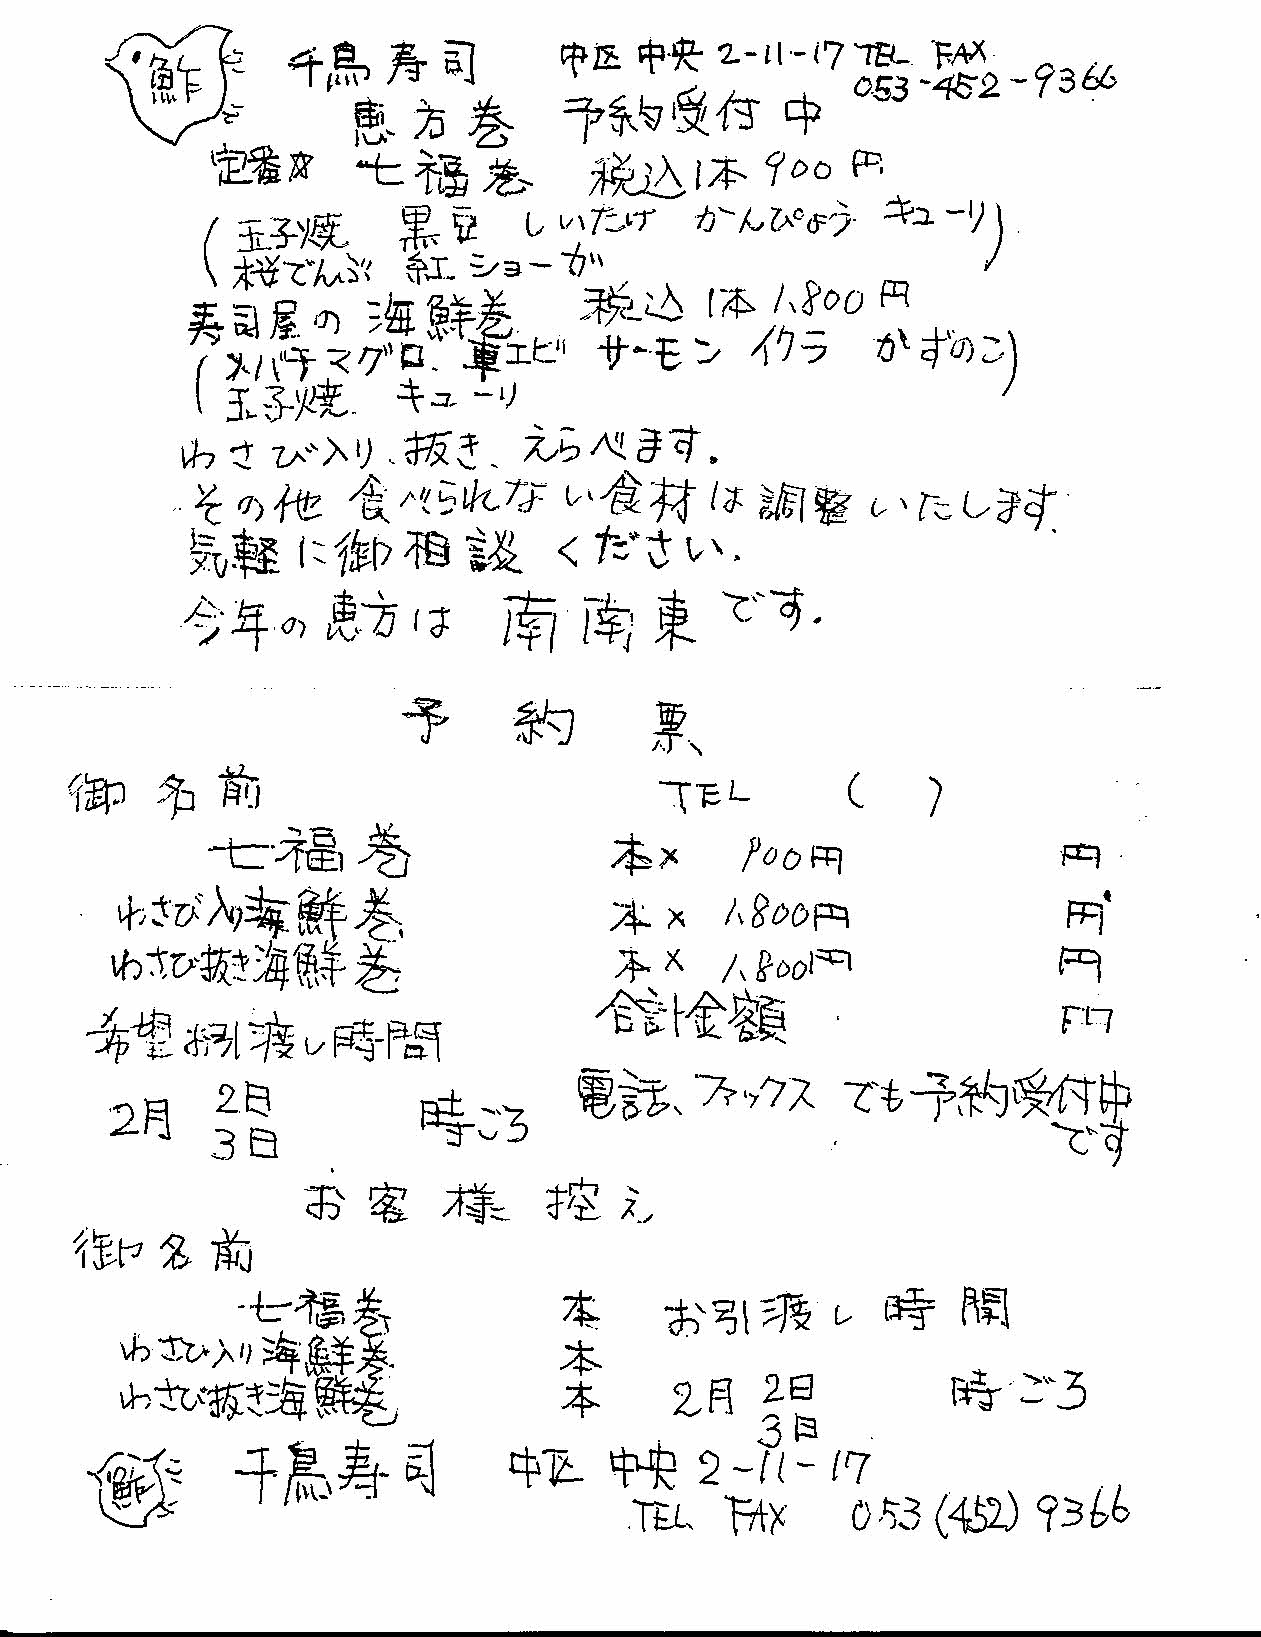 鮓 千鳥寿司 中区中央2-11-17 TEL FAX
053-452-9366
恵方巻 予約受付中
定番☆ 七福巻 税込1本900円
(玉子焼 黒豆 しいたけ かんぴょう キューリ
桜でんぶ 紅ショーが)
寿司屋の海鮮巻 税込1本1,800円
(メバチマグロ、車エビ サーモン イクラ かずのこ
玉子焼 キューリ)
わさび入り、抜き、えらべます。
その他食べられない食材は調整いたします.
気軽に御相談ください.
今年の恵方は 南南東です.
予約票
御名前 TEL ( )
七福巻 本× 900円 円
わさび入り海鮮巻 本× 1,800円 円
わさび抜き海鮮巻 本× 1,800円 円
合計金額 円
希望お引渡し時間
2月 2日 3日 時ごろ
電話、ファックスでも予約受付中
です
お客様控え
御名前
七福巻 本 お引渡し時間
わさび入り海鮮巻 本
わさび抜き海鮮巻 本 2月 2日 時ごろ
3日
鮓 千鳥寿司 中区 中央2-11-17
TEL FAX 053(452)9366